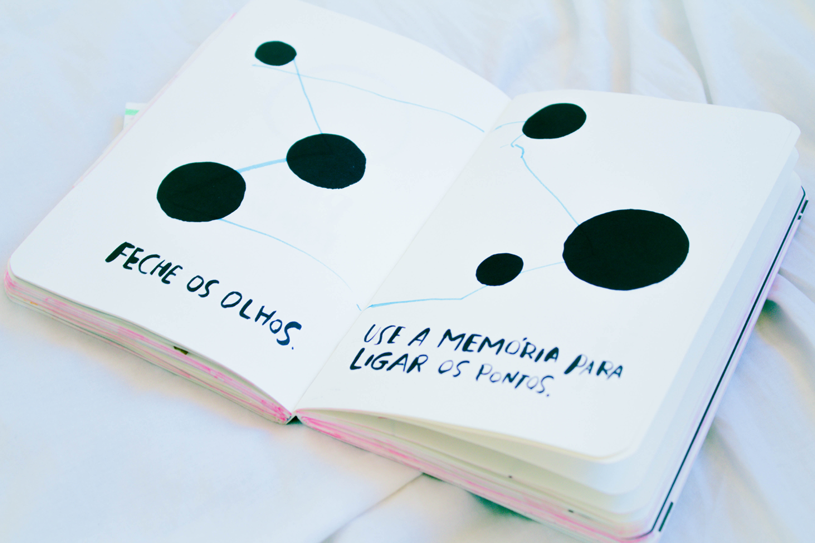 FECHE OS OLHOS.
USE A MEMÓRIA PARA
LIGAR OS PONTOS.